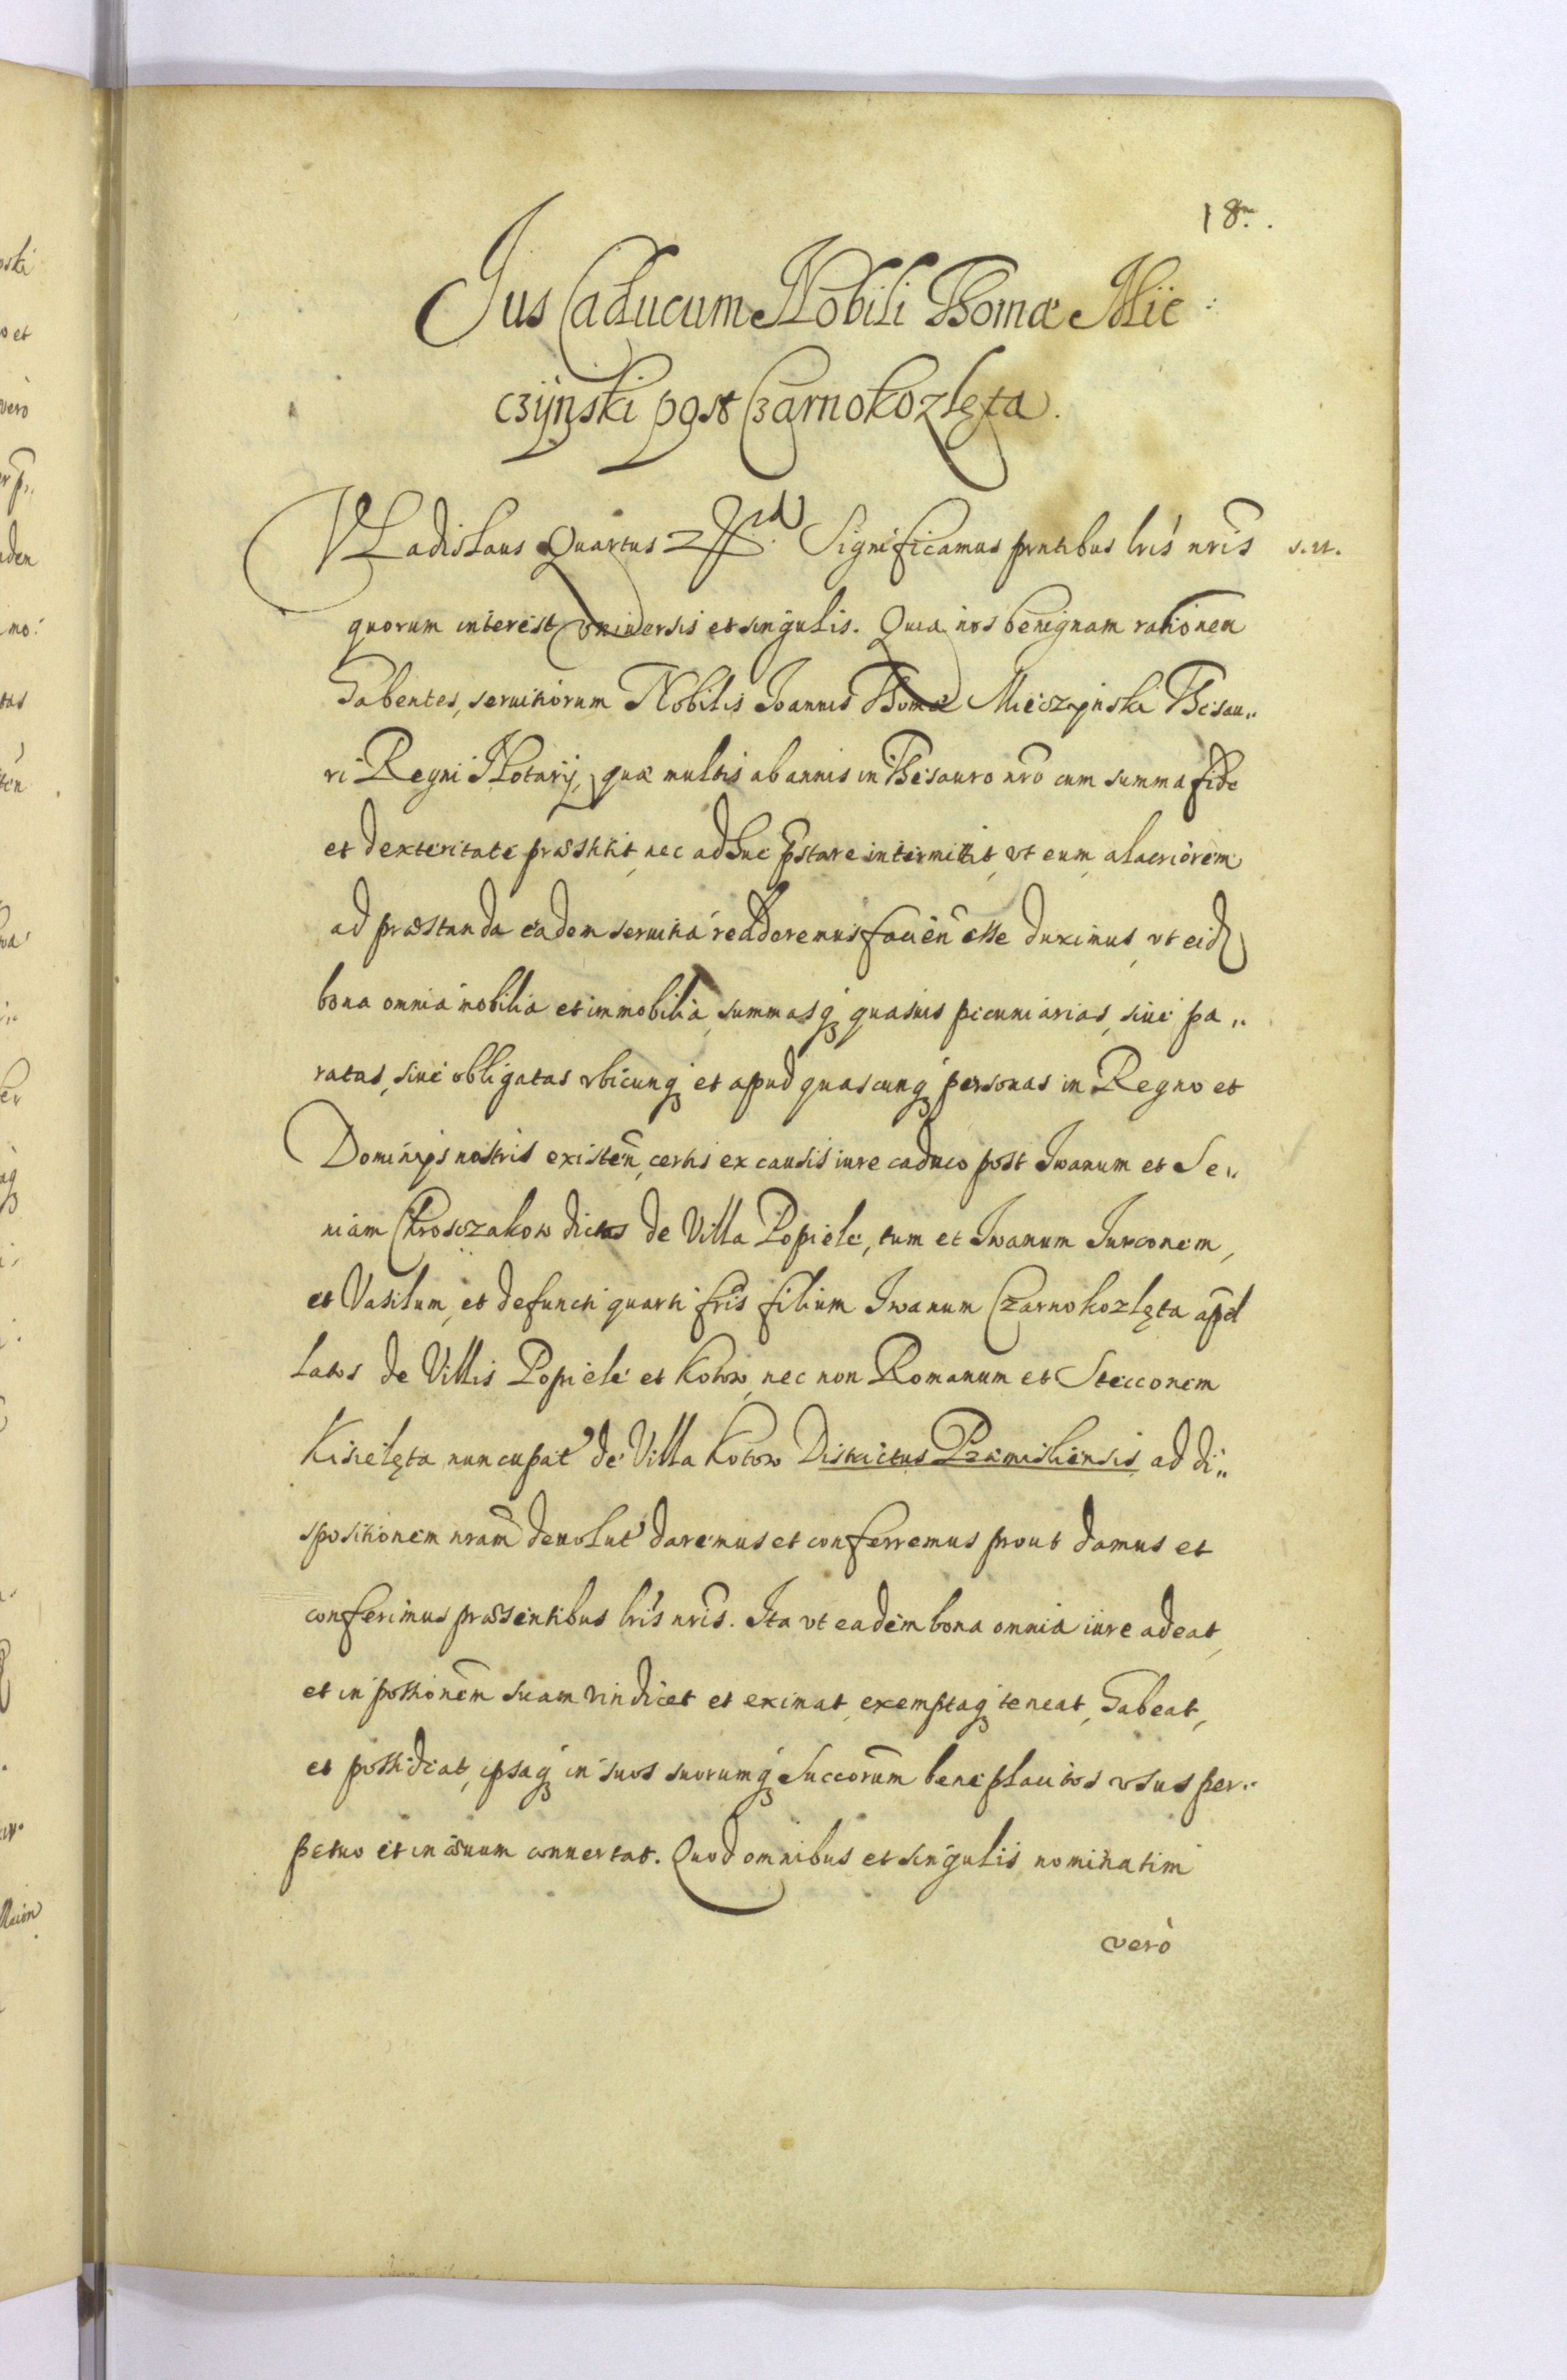 18.
Jus Caducum Nobili Thomæ Mie:
czÿnski post Czarnokozlęta.
Vladislaus Quartus Significamus pntibus lris nris s. n.
quorum interest vniuersis et singulis. Quia nos benignam rationem
habentes, seruitiorum Nobilis Joannis Thomæ Mieczynski Thesau„
ri Regni Notarij, quæ multis ab annis in Thesauro nro cum summa fide
et dexteritate præstitit, nec adhuc pstare intermittit, vt eum alacriorem
ad præstanda eadem seruitia redderemus facien esse duximus, vt eid
bona omnia mobilia et immobilia, summasq quasuis pecuniarias, siue pa„
ratas, siue obligatas vbicunq et apud quascunq personas in Regno et
Dominijs nostris existen, certis ex causis iure caduco post Iwanum et Se„
niam Chrosczakow dictos de Villa Popiele, tum et Iwanum Iurconem,
et Vasilum, et defuncti quarti fris filium Iwanum Czarnokozlęta apel
latos de Villis Popiele et Kotow, nec non Romanum et Stecconem
Kisielęta nuncupat de Villa Kotow Districtus Præmisliensis ad di„
spositionem nram deuolut daremus et conferremus prout damus et
conferimus præsentibus lris nris. Ita vt eadem bona omnia iure adeat,
et in possionem suam vindicet et eximat, exemptaq teneat, habeat,
et possideat, ipsaq in suos suorumq Succorum beneplacitos vsus per„
petuo et in æuum conuertat. Quod omnibus et singulis nominatim
verò